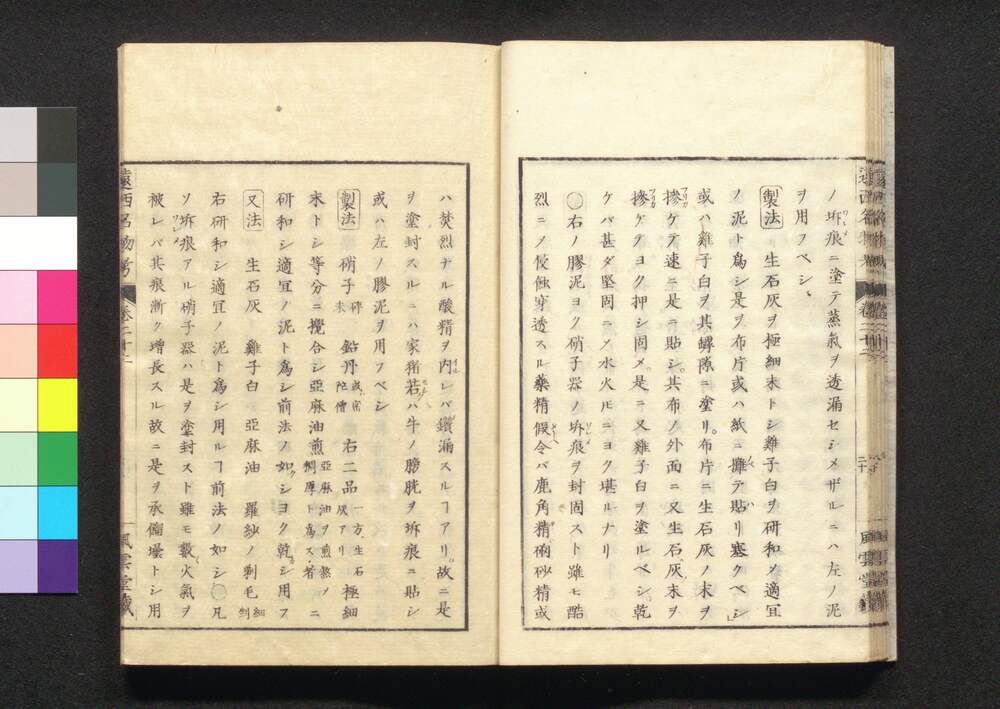 ノ坼痕ニ塗テ蒸氣ヲ透漏セシメザルニハ左ノ泥
ヲ用フベシ
製法 生石灰ヲ極細末トシ雞子白ヲ研和メ適宜
ノ泥ト爲シ是ヲ布片或ハ紙ニ攤テ貼リ塞クベシ
或ハ雞子白ヲ其罅隙ニ塗リ布片ニ生石灰ノ末ヲ
摻ケテ速ニ是ニ貼シ其布ノ外面ニ又生石灰末ヲ
摻ケテヨク押シ固メ是ニ又雞子白ヲ塗ルベシ乾
ケバ甚ダ堅固ニメ水火ヒニヨク堪ルナリ
○右ノ膠泥ヨク硝子器ノ坼痕ヲ封固スト雖モ酷
烈ニメ侵蝕穿透スル藥精假令バ鹿角精硇砂精或
ハ焚烈ナル酸精ヲ内レバ鑽漏スルヿアリ故ニ是
ヲ塗封スルニハ家猪若ハ牛ノ膀胱ヲ坼痕ニ貼シ
或ハ左ノ膠泥ヲ用フベシ
製法 硝子 碎末 鉛丹 或密陀僧 右二品 一方生石灰アリ 極細
末トシ等分ニ攪合シ亞麻油煎 亞麻油ヲ煎熬メ稠厚ト爲ス者 ニ
研和シ適宜ノ泥ト爲シ前法ノ如シヨク乾シ用フ
又法 生石灰 雞子白 亞麻油 羅紗ノ剩毛 細剉
右研和シ適宜ノ泥ト爲シ用ルヿ前法ノ如シ○凡
ソ坼痕アル硝子器ハ是ヲ塗封スト雖モ數火氣ヲ
被レバ其痕漸ク增長スル故ニ是ヲ承僃壜トシ用
遠西名物考
卷二十二
風雲堂藏